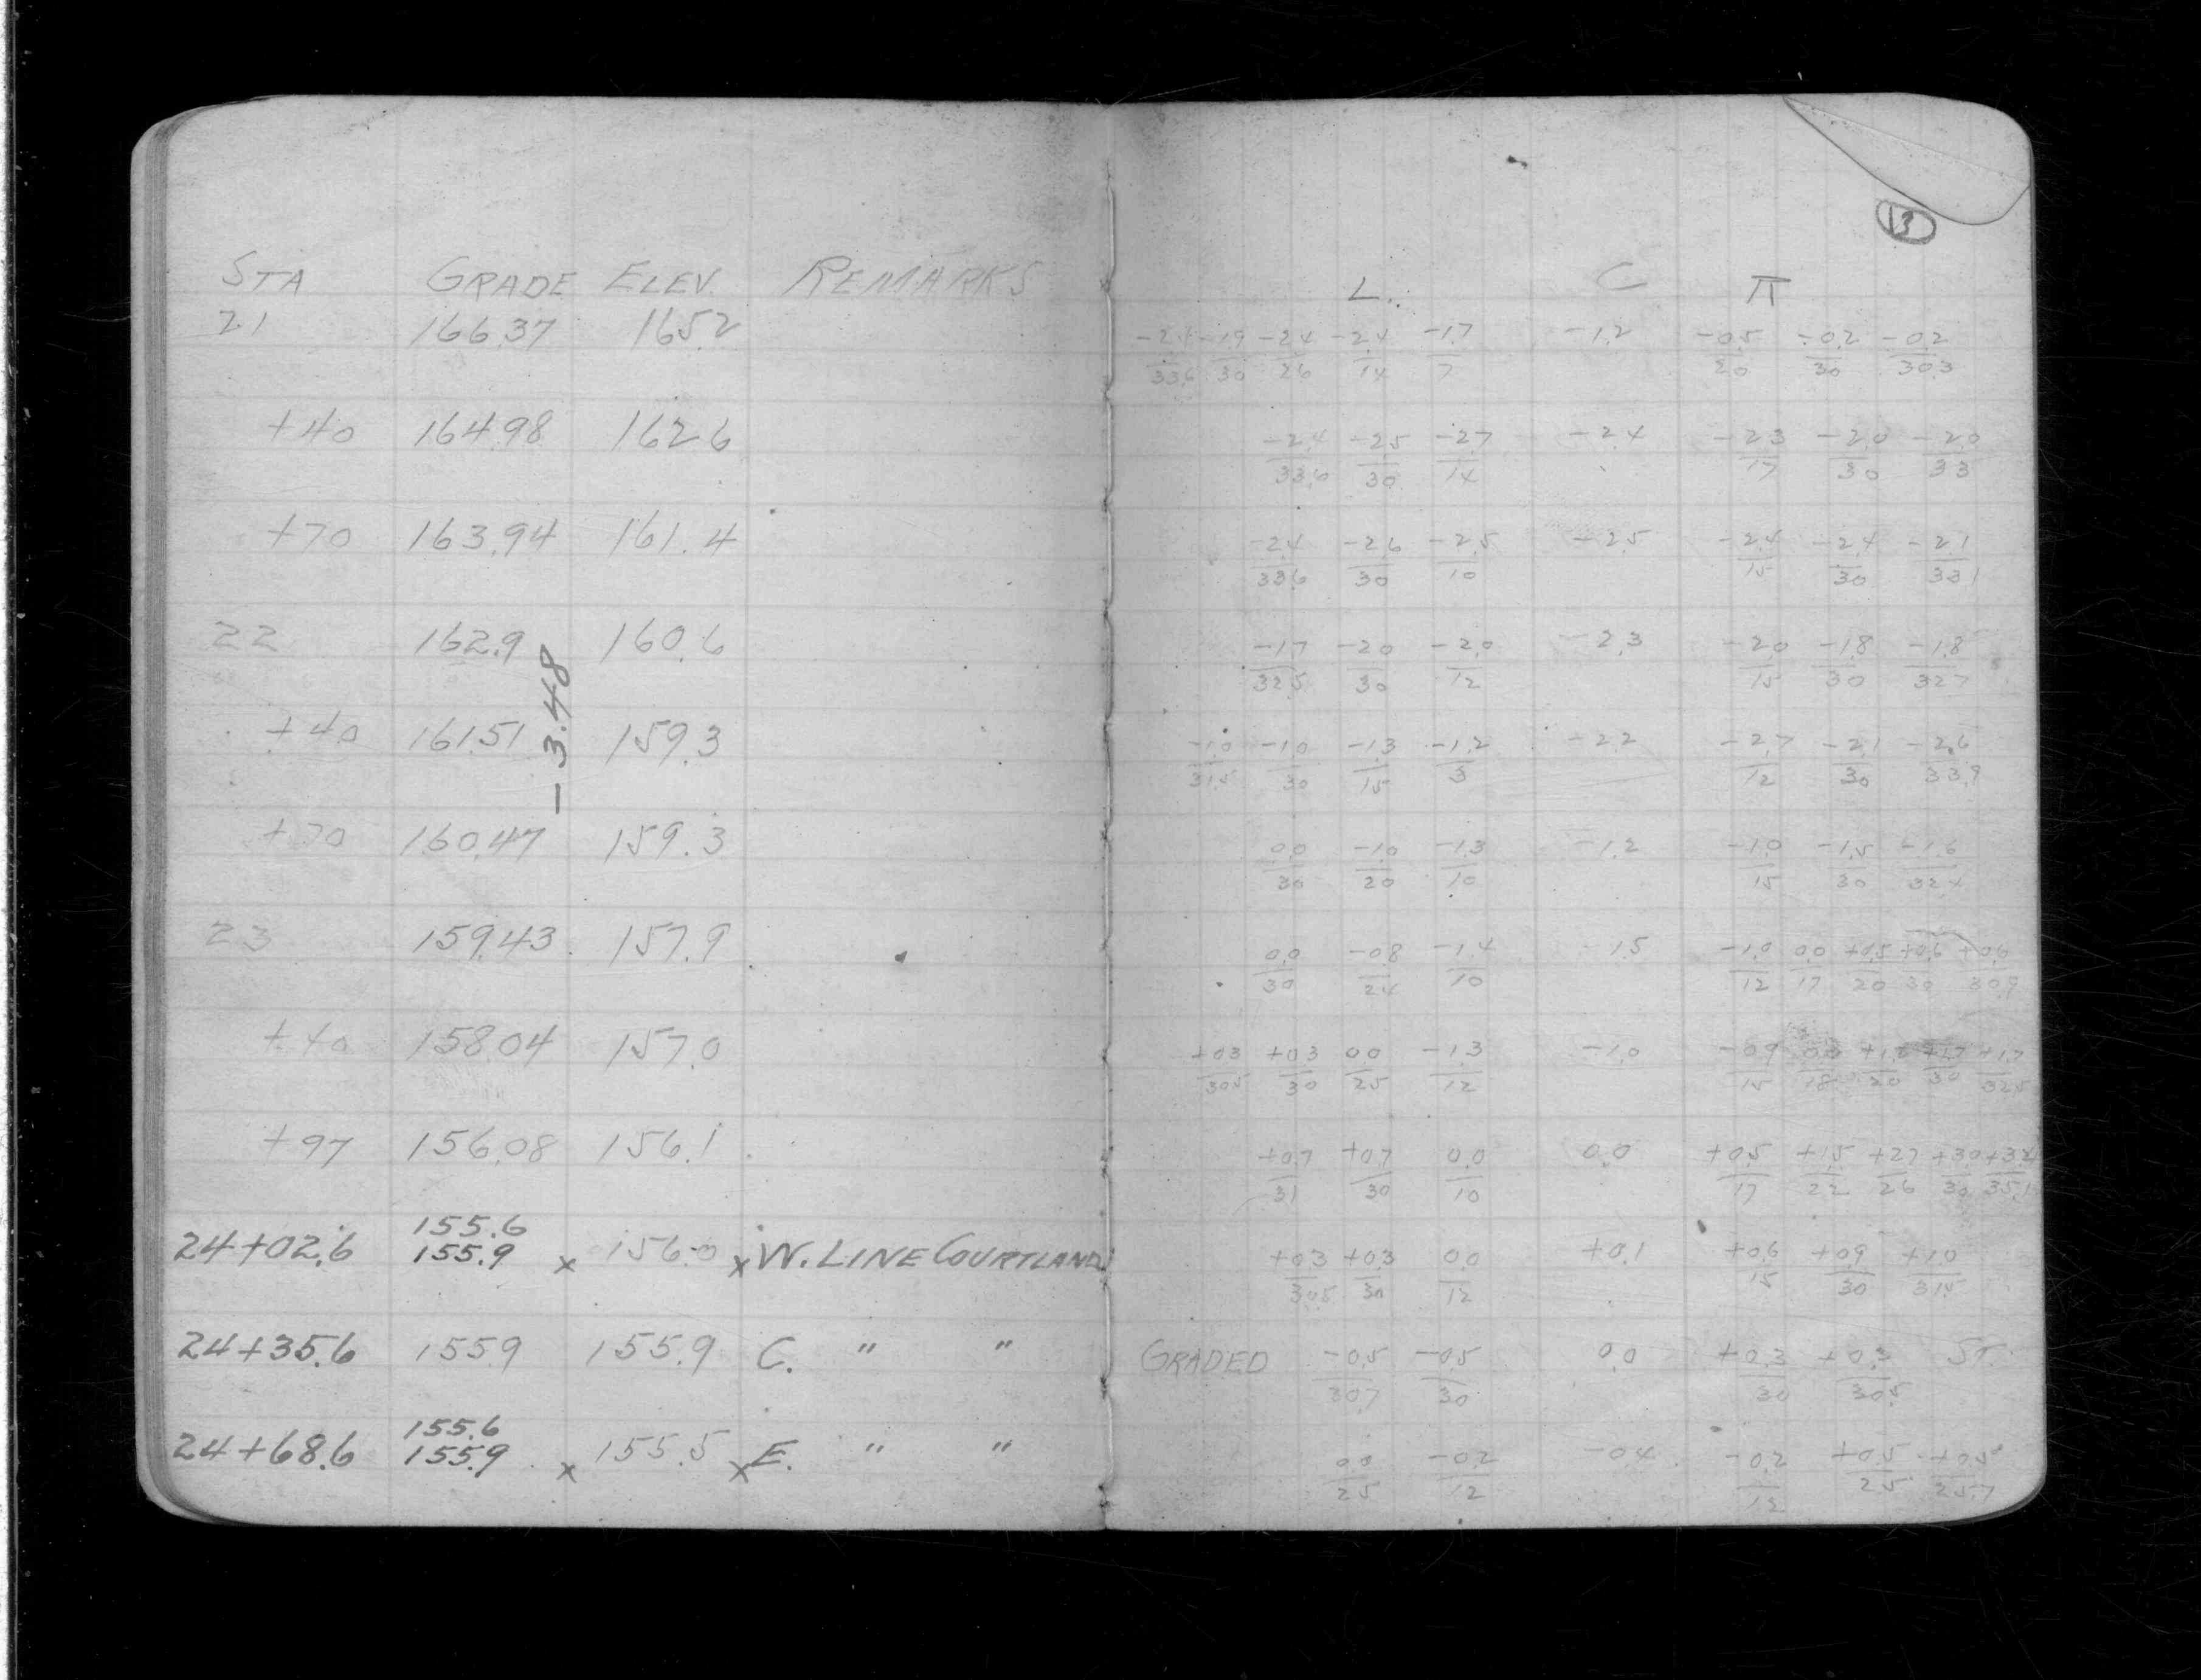 13
STA GRADE ELEV. REMARKS L. C R
21 166.37 165.2 -2.4 -1.9 -2.4 -2.4 -1.7 -1.2 -0.5 -0.2 -0.2
33.6 30 26 14 7 20 30 30.3
+40 164.98 162.6 -2.4 -2.5 -2.7 -2.4 -2.3 -2.0 -2.0
33.6 30 14 17 30 33
+70 163.94 161.4 -2.4 -2.6 -2.5 -2.5 -2.4 -2.4 -2.1
33.6 30 10 15 30 33.1
22 162.9 160.6 -1.7 -2.0 -2.0 -2.3 -2.0 -1.8 -1.8
32.5 30 12 15 30 32.7
-3.48
+40 161.51 159.3 -1.0 -1.0 -1.3 -1.2 -2.2 -2.7 -2.1 -2.6
31.5 30 15 3 12 30 33.9
+70 160.47 159.3 0.0 -1.0 -1.3 -1.2 -1.0 -1.5 -1.6
30 20 10 15 30 32.4
23 159.43 157.9 0.0 -0.8 -1.4 -1.5 -1.0 0.0 +0.5 +0.6 +0.6
30 24 10 12 17 20 30 30.9
+40 158.04 157.0 +0.3 +0.3 0.0 -1.3 -1.0 -0.9 0.0 +1.7 +1.7
30.5 30 25 12 15 18 20 30 32.5
+97 156.08 156.1 +0.7 +0.7 0.0 0.0 +0.5 +1.5 +2.7 +3.0 +3.4
31 30 10 17 22 26 30 35.1
155.6
24+02.6 155.9 x 156.0 x W. LINE COURTLAND +0.3 +0.3 0.0 +0.1 +0.6 +0.9 +1.0
30.5 30 12 15 30 31.5
24+35.6 155.9 155.9 C. " " GRADED -0.5 -0.5 0.0 +0.3 +0.3 ST.
30.7 30 30 30.5
155.6
24+68.6 155.9 x 155.5 x E. " " 0.0 -0.2 -0.4 -0.2 +0.5 +0.5
25 12 12 25 25.7